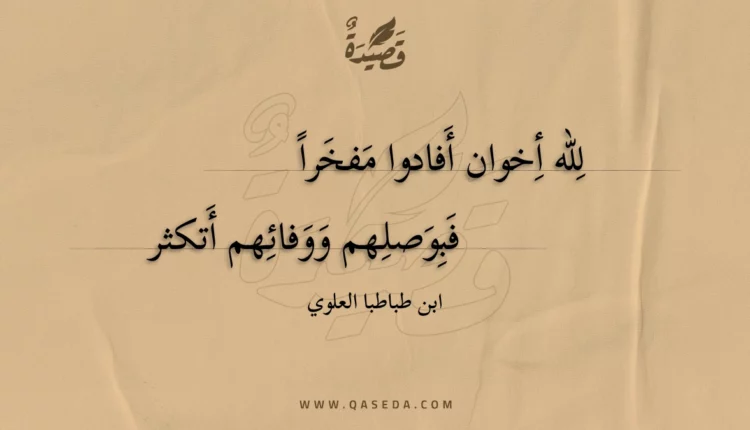 قَصِيْدَةٌ
لِلّه أِخوان أَفادوا مَفخَراً
فَبِوَصلِهم وَوَفائِهم أَتكثر
ابن طباطبا العلوي
WWW.QASEDA.COM